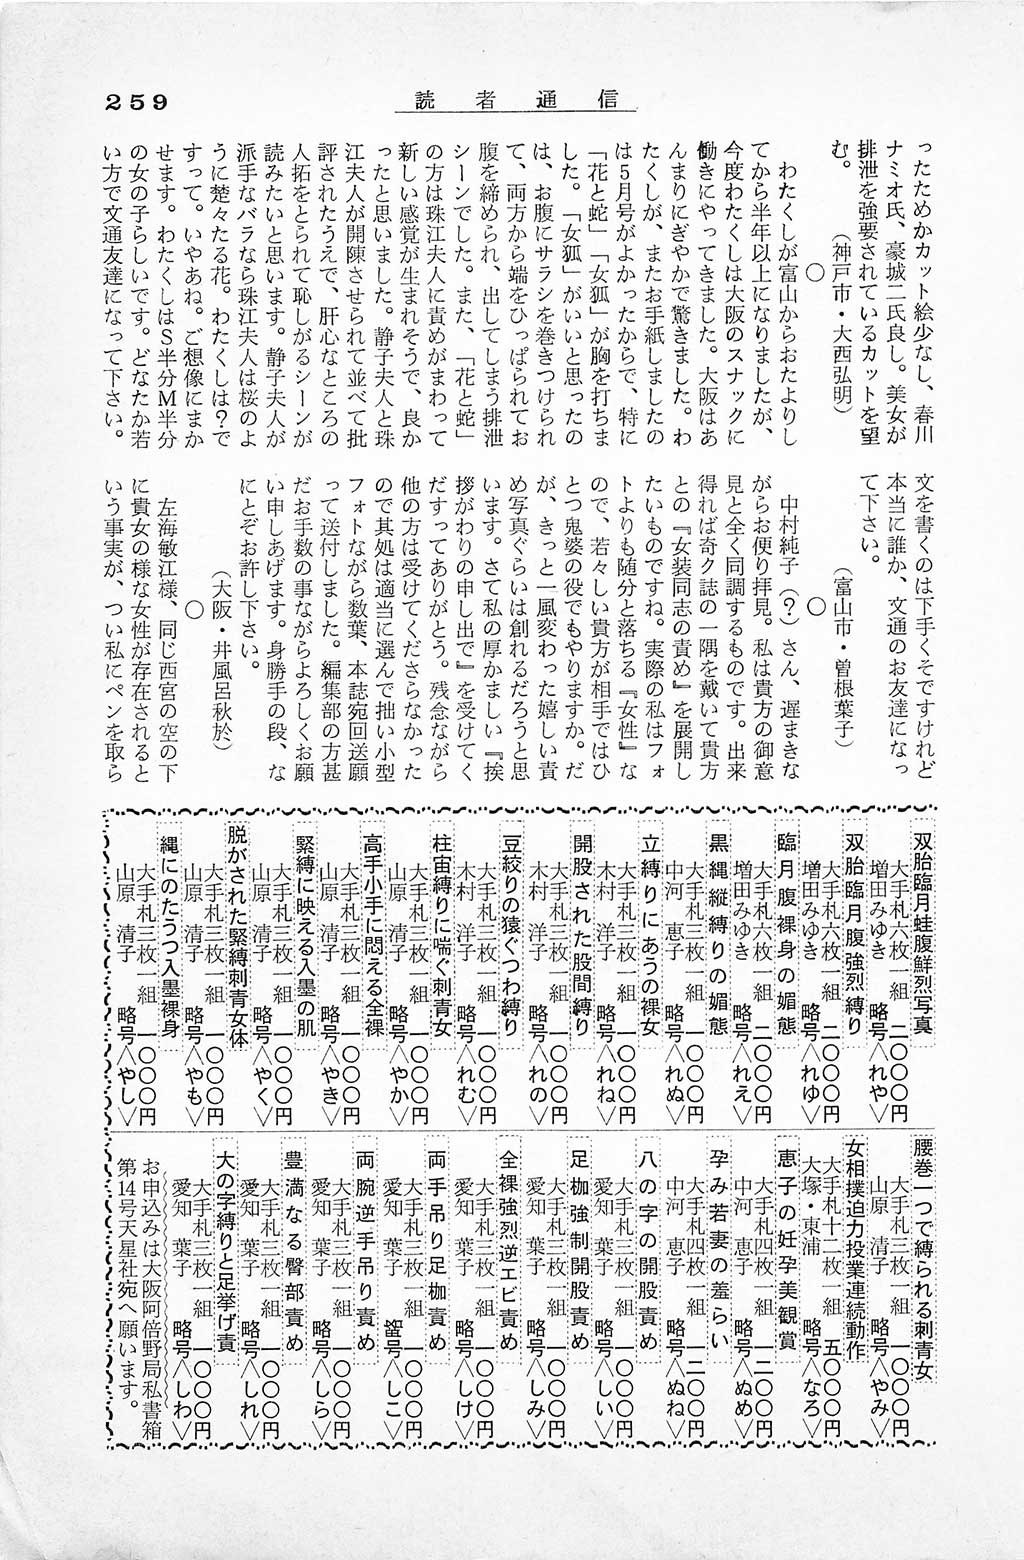 読者通信
259
ったためかカット絵少なし、春川
ナミオ氏、豪城二氏良し。美女が
排泄を強要されているカットを望
む。
(神戸市・大西弘明)
○
わたくしが富山からおたよりし
てから半年以上になりましたが、
今度わたくしは大阪のスナックに
働きにやってきました。大阪はあ
んまりにぎやかで驚きました。わ
たくしが、またお手紙しましたの
は5月号がよかったからで、特に
「花と蛇」「女狐」が胸を打ちま
した。「女狐」がいいと思ったの
は、お腹にサラシを巻きつけられ
て、両方から端をひっぱられてお
腹を締められ、出してしまう排泄
シーンでした。また、「花と蛇」
の方は珠江夫人に責めがまわって
新しい感覚が生まれそうで、良か
ったと思いました。静子夫人と珠
江夫人が開陳させられて並べて批
評されたうえで、肝心なところの
人拓をとられて恥しがるシーンが
読みたいと思います。静子夫人が
派手なバラなら珠江夫人は桜のよ
うに楚々たる花。わたくしは?で
すって。いやあね。ご想像にまか
せます。わたくしはS半分M半分
の女の子らしいです。どなたか若
い方で文通友達になって下さい。
文を書くのは下手くそですけれど
本当に誰か、文通のお友達になっ
て下さい。
(富山市・曽根葉子)
○
中村純子(?)さん、遅まきな
がらお便り拝見。私は貴方の御意
見と全く同調するものです。出来
得れば奇ク誌の一隅を戴いて貴方
との『女装同志の責め』を展開し
たいものですね。実際の私はフォ
トよりも随分と落ちる『女性』な
ので、若々しい貴方が相手ではひ
とつ鬼婆の役でもやりますか。だ
が、きっと一風変わった嬉しい責
め写真ぐらいは創れるだろうと思
います。さて私の厚かましい『挨
拶がわりの申し出で』を受けてく
だすってありがとう。残念ながら
他の方は受けてくださらなかった
ので其処は適当に選んで拙い小型
フォトながら数葉、本誌宛回送願
って送付しました。編集部の方甚
だお手数の事ながらよろしくお願
い申しあげます。身勝手の段、な
にとぞお許し下さい。
(大阪・井風呂秋於)
○
左海敏江様、同じ西宮の空の下
に貴女の様な女性が存在されると
いう事実が、つい私にペンを取ら
双胎臨月蛙腹鮮烈写真
大手札六枚一組 二〇〇〇円
増田みゆき 略号〈れや〉
双胎臨月腹強烈縛り
大手札六枚一組 二〇〇〇円
増田みゆき 略号〈れゆ〉
臨月腹裸身の媚態
大手札六枚一組 二〇〇〇円
増田みゆき 略号〈れえ〉
黒縄縦縛りの媚態
大手札三枚一組 一〇〇〇円
中河 恵子 略号〈れぬ〉
立縛りにあうの裸女
大手札三枚一組 一〇〇〇円
木村 洋子 略号〈れね〉
開股された股間縛り
大手札三枚一組 一〇〇〇円
木村 洋子 略号〈れの〉
豆絞りの猿ぐつわ縛り
大手札三枚一組 一〇〇〇円
木村 洋子 略号〈れむ〉
柱宙縛りに喘ぐ刺青女
大手札三枚一組 一〇〇〇円
山原 清子 略号〈やか〉
高手小手に悶える全裸
大手札三枚一組 一〇〇〇円
山原 清子 略号〈やき〉
緊縛に映える入墨の肌
大手札三枚一組 一〇〇〇円
山原 清子 略号〈やく〉
脱がされた緊縛刺青女体
大手札三枚一組 一〇〇〇円
山原 清子 略号〈やも〉
縄にのたうつ入墨裸身
大手札三枚一組 一〇〇〇円
山原 清子 略号〈やし〉
腰巻一つで縛られる刺青女
大手札三枚一組 一〇〇〇円
山原 清子 略号〈やみ〉
女相撲迫力投業連続動作
大手札十二枚一組 五〇〇〇円
大塚・東浦 略号〈なろ〉
恵子の妊孕美観賞
大手札四枚一組 一二〇〇円
中河 恵子 略号〈ぬめ〉
孕み若妻の羞らい
大手札四枚一組 一二〇〇円
中河 恵子 略号〈ぬね〉
八の字の開股責め
大手札三枚一組 一〇〇〇円
愛知 葉子 略号〈しい〉
足枷強制開股責め
大手札三枚一組 一〇〇〇円
愛知 葉子 略号〈しみ〉
全裸強烈逆エビ責め
大手札三枚一組 一〇〇〇円
愛知 葉子 略号〈しけ〉
両手吊り足枷責め
大手札三枚一組 一〇〇〇円
愛知 葉子 略号〈しこ〉
両腕逆手吊り責め
大手札三枚一組 一〇〇〇円
愛知 葉子 略号〈しら〉
豊満なる臀部責め
大手札三枚一組 一〇〇〇円
愛知 葉子 略号〈しれ〉
大の字縛りと足挙げ責
大手札三枚一組 一〇〇〇円
愛知 葉子 略号〈しわ〉
お申込みは大阪阿倍野局私書箱
第14号天星社宛へ願います。